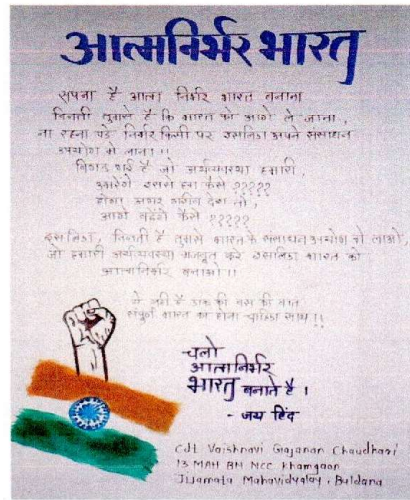 आत्मनिर्भर भारत
सपना है आत्म निर्भर भारत बनाना
विनती तुमसे है कि भारत को आगे ले जाना,
ना रहना पडे निर्भर किसी पर इसलिए अपने संसाधन
उपयोग मे लाना।।
बिगड गई है जो अर्थव्यवस्था हमारी,
उभरेंगे इससे हम कैसे ?????
होगा अगर गरीब देश तो,
आगे बढेंगे कैसे ?????
इसलिए, विनती है तुमसे भारत के संसाधन उपयोग मे लाओ,
जो हमारी अर्थव्यवस्था मजबूत करे इसलिए भारत को
आत्मनिर्भर बनाओ।।
ये नही है एक की बस की बात
संपूर्ण भारत का होना चाहिए साथ !!
चलो
आत्मनिर्भर
भारत बनाते है।
- जय हिंद
Cdt Vaishnavi Gajanan Chaudhari
13 MAH BN NCC Khamgaon
Jijamata Mahavidyalay, Buldana